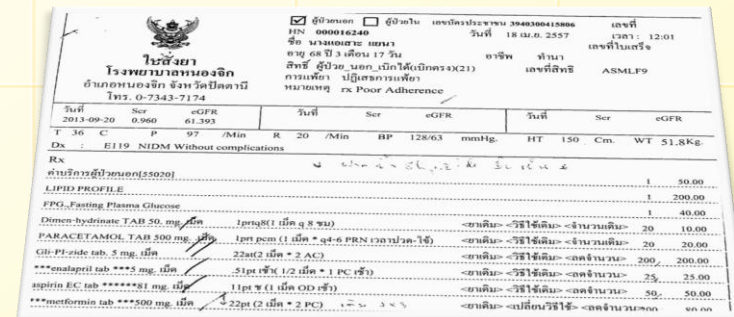 ใบสั่งยา
โรงพยาบาลหนองจิก
อำเภอหนองจิก จังหวัดปัตตานี
โทร. 0-7343-7174
☑ ผู้ป่วยนอก ☐ ผู้ป่วยใน เลขบัตรประชาชน 3940300415806 เลขที่
HN 000016240 วันที่ 18 เม.ย. 2557 เวลา : 12:01
ชื่อ นางแอเสาะ แยนา เลขที่ใบเสร็จ
อายุ 68 ปี 3 เดือน 17 วัน อาชีพ ทำนา
สิทธิ์ ผู้ป่วย_นอก_เบิกได้(เบิกตรง)(21) เลขที่สิทธิ ASMLF9
การแพ้ยา ปฏิเสธการแพ้ยา
หมายเหตุ rx Poor Adherence
วันที่ Scr eGFR วันที่ Scr eGFR วันที่ Scr eGFR
2013-09-20 0.960 61.393
T 36 C P 97 /Min R 20 /Min BP 128/63 mmHg. HT 150 Cm. WT 51.8Kg.
Dx : E119 NIDM Without complications
Rx
ค่าบริการผู้ป่วยนอก[55020] 1 50.00
LIPID PROFILE 1 200.00
FPG.,Fasting Plasma Glucose 1 40.00
Dimen-hydrinate TAB 50. mg. เม็ด 1prtq8(1 เม็ด q 8 ชม) <ยาเดิม> <วิธีใช้เดิม> <จำนวนเดิม> 20 10.00
PARACETAMOL TAB 500 mg. เม็ด 1prt pcm (1 เม็ด * q4-6 PRN เวลาปวด-ไข้) <ยาเดิม> <วิธีใช้เดิม> <จำนวนเดิม> 20 20.00
Gli-PI-zide tab. 5 mg. เม็ด 22at(2 เม็ด * 2 AC) <ยาเดิม> <วิธีใช้เดิม> <ลดจำนวน> 200 200.00
***enalapril tab ***5 mg. เม็ด .51pt เช้า( 1/2 เม็ด * 1 PC เช้า) <ยาเดิม> <วิธีใช้เดิม> <ลดจำนวน> 25 25.00
aspirin EC tab ******81 mg. เม็ด 11pt ช (1 เม็ด OD เช้า) <ยาเดิม> <วิธีใช้เดิม> <ลดจำนวน> 50 50.00
***metformin tab ***500 mg. เม็ด 22pt (2 เม็ด * 2 PC) <ยาเดิม> <เปลี่ยนวิธีใช้> <ลดจำนวน>